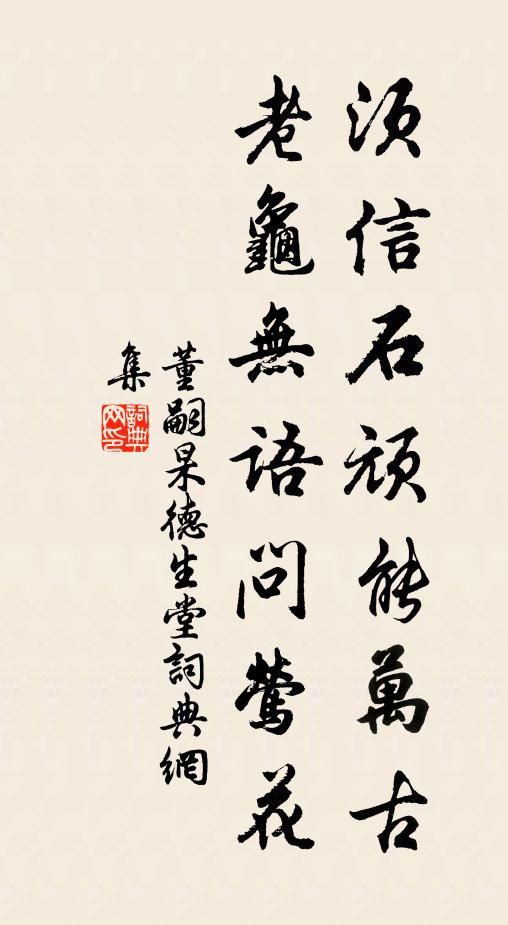 須信石頑能萬古
老龜無語問鶯花
董嗣杲德生堂詞典網
集
詞典網印